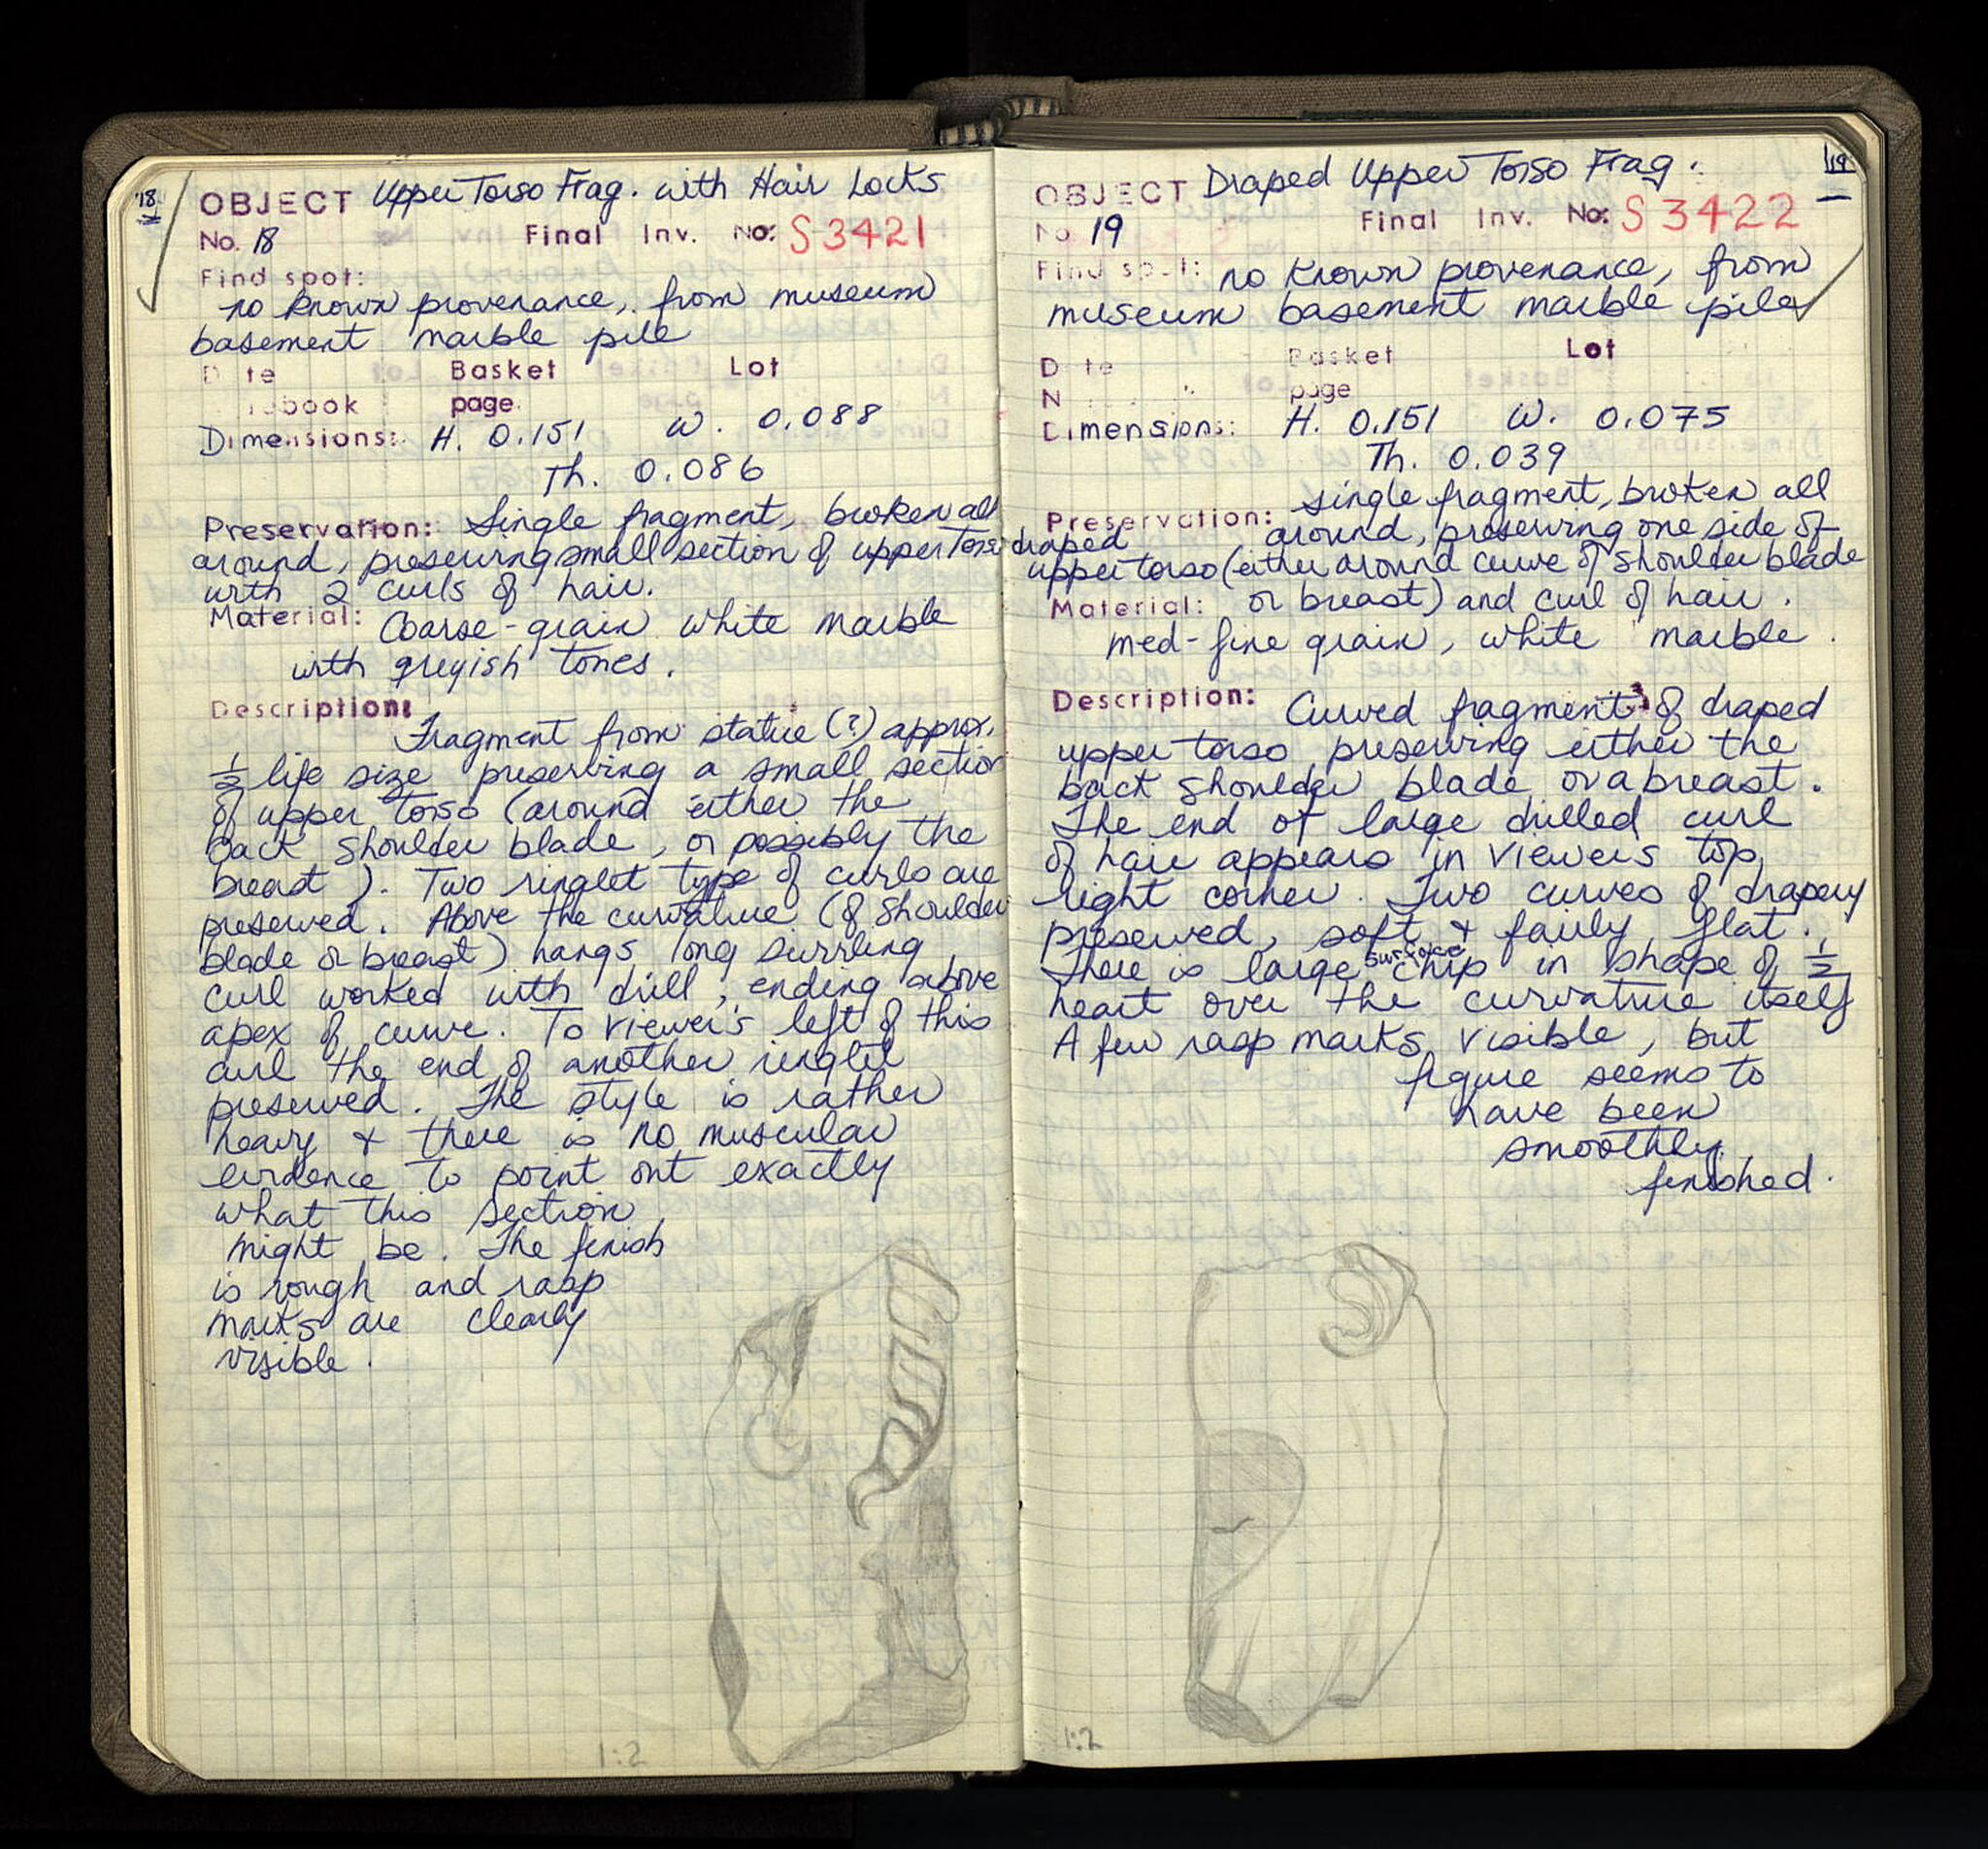 18
OBJECT Upper Torso Frag. with Hair Locks
No. 18 Final Inv. No: S 3421
Find spot:
no known provenance, from museum
basement marble pile
D te Basket Lot
book page
Dimensions: H. 0.151 W. 0.088
Th. 0.086
Preservation: Single fragment, broken all
around, preserving small section of upper torso
with 2 curls of hair.
Material: Coarse-grain white marble
with greyish tones.
Description:
Fragment from statue (?) approx.
1/2 life size preserving a small section
of upper torso (around either the
back shoulder blade, or possibly the
breast). Two ringlet type of curls are
preserved. Above the curvature (of shoulder
blade or breast) hangs long swirling
curl worked with drill, ending above
apex of curve. To viewer's left of this
curl the end of another ringlet
preserved. The style is rather
heavy & there is no muscular
evidence to point out exactly
what this section
might be. The finish
is rough and rasp
marks are clearly
visible.
1:2
19
OBJECT Draped Upper Torso Frag.
No 19 Final Inv. No: S 3422
Find spot: no known provenance, from
museum basement marble pile
D te Basket Lot
N page
Dimensions: H. 0.151 W. 0.075
Th. 0.039
single fragment, broken all
Preservation: around, preserving one side of
draped
upper torso (either around curve of shoulder blade
Material: or breast) and curl of hair.
med-fine grain, white marble.
Description: Curved fragment of draped
upper torso preserving either the
back shoulder blade or a breast.
The end of large drilled curl
of hair appears in viewers top
right corner. Two curves of drapery
preserved, soft & fairly flat.
There is large surface chip in shape of 1/2
heart over the curvature itself
A few rasp marks visible, but
figure seems to
have been
smoothly
finished.
1:2